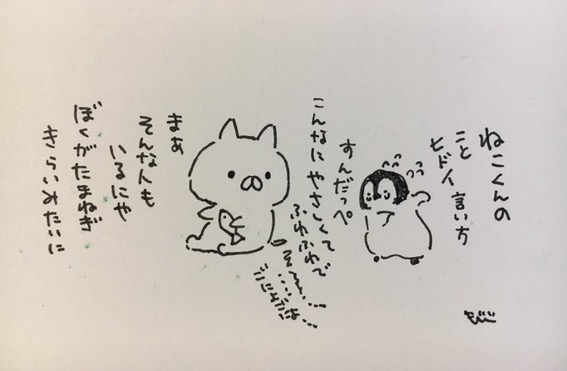 ねこくんの
こと
ヒドイ言い方
すんだっぺ
こんなにやさしくて
ふわふわで
そ
ごにょごにょ
まぁ
そんな人も
いるにや
ぼくがたまねぎ
きらいみたいに